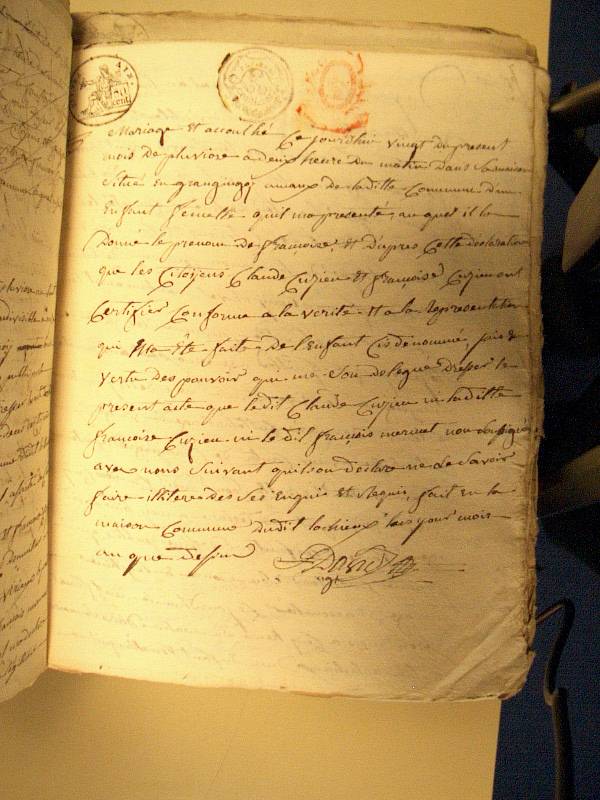 Mariage Et accouché Ce jourdhui vingt du present
mois de pluviose a deux heure du matin dans la maison
Situé En de la ditte Commune dun
Enfant femelle quil ma presenté, au quel il a
Donne le prenom de françoise, Et Dupres Cette declaration
que les Citoyens Claude Cuzieu Et françoise Cuzieu ont
Certifier Conforme a la verité Et a la Representation
qui Ma Eté faite De L'enfant Cis denommé, jai en
Vertu des pouvoir qui me Son delegue Dresser le
present acte que ledit Claude Cuzieu ni laditte
françoise Cuzieu ni le dit françois mermet non Signé
avec nous Suivant quils on declare ne le Savoir
faire illitere des Ses Enquis Et Requis, fait En la
maison Commune dudit les jour mois
an que dessus David